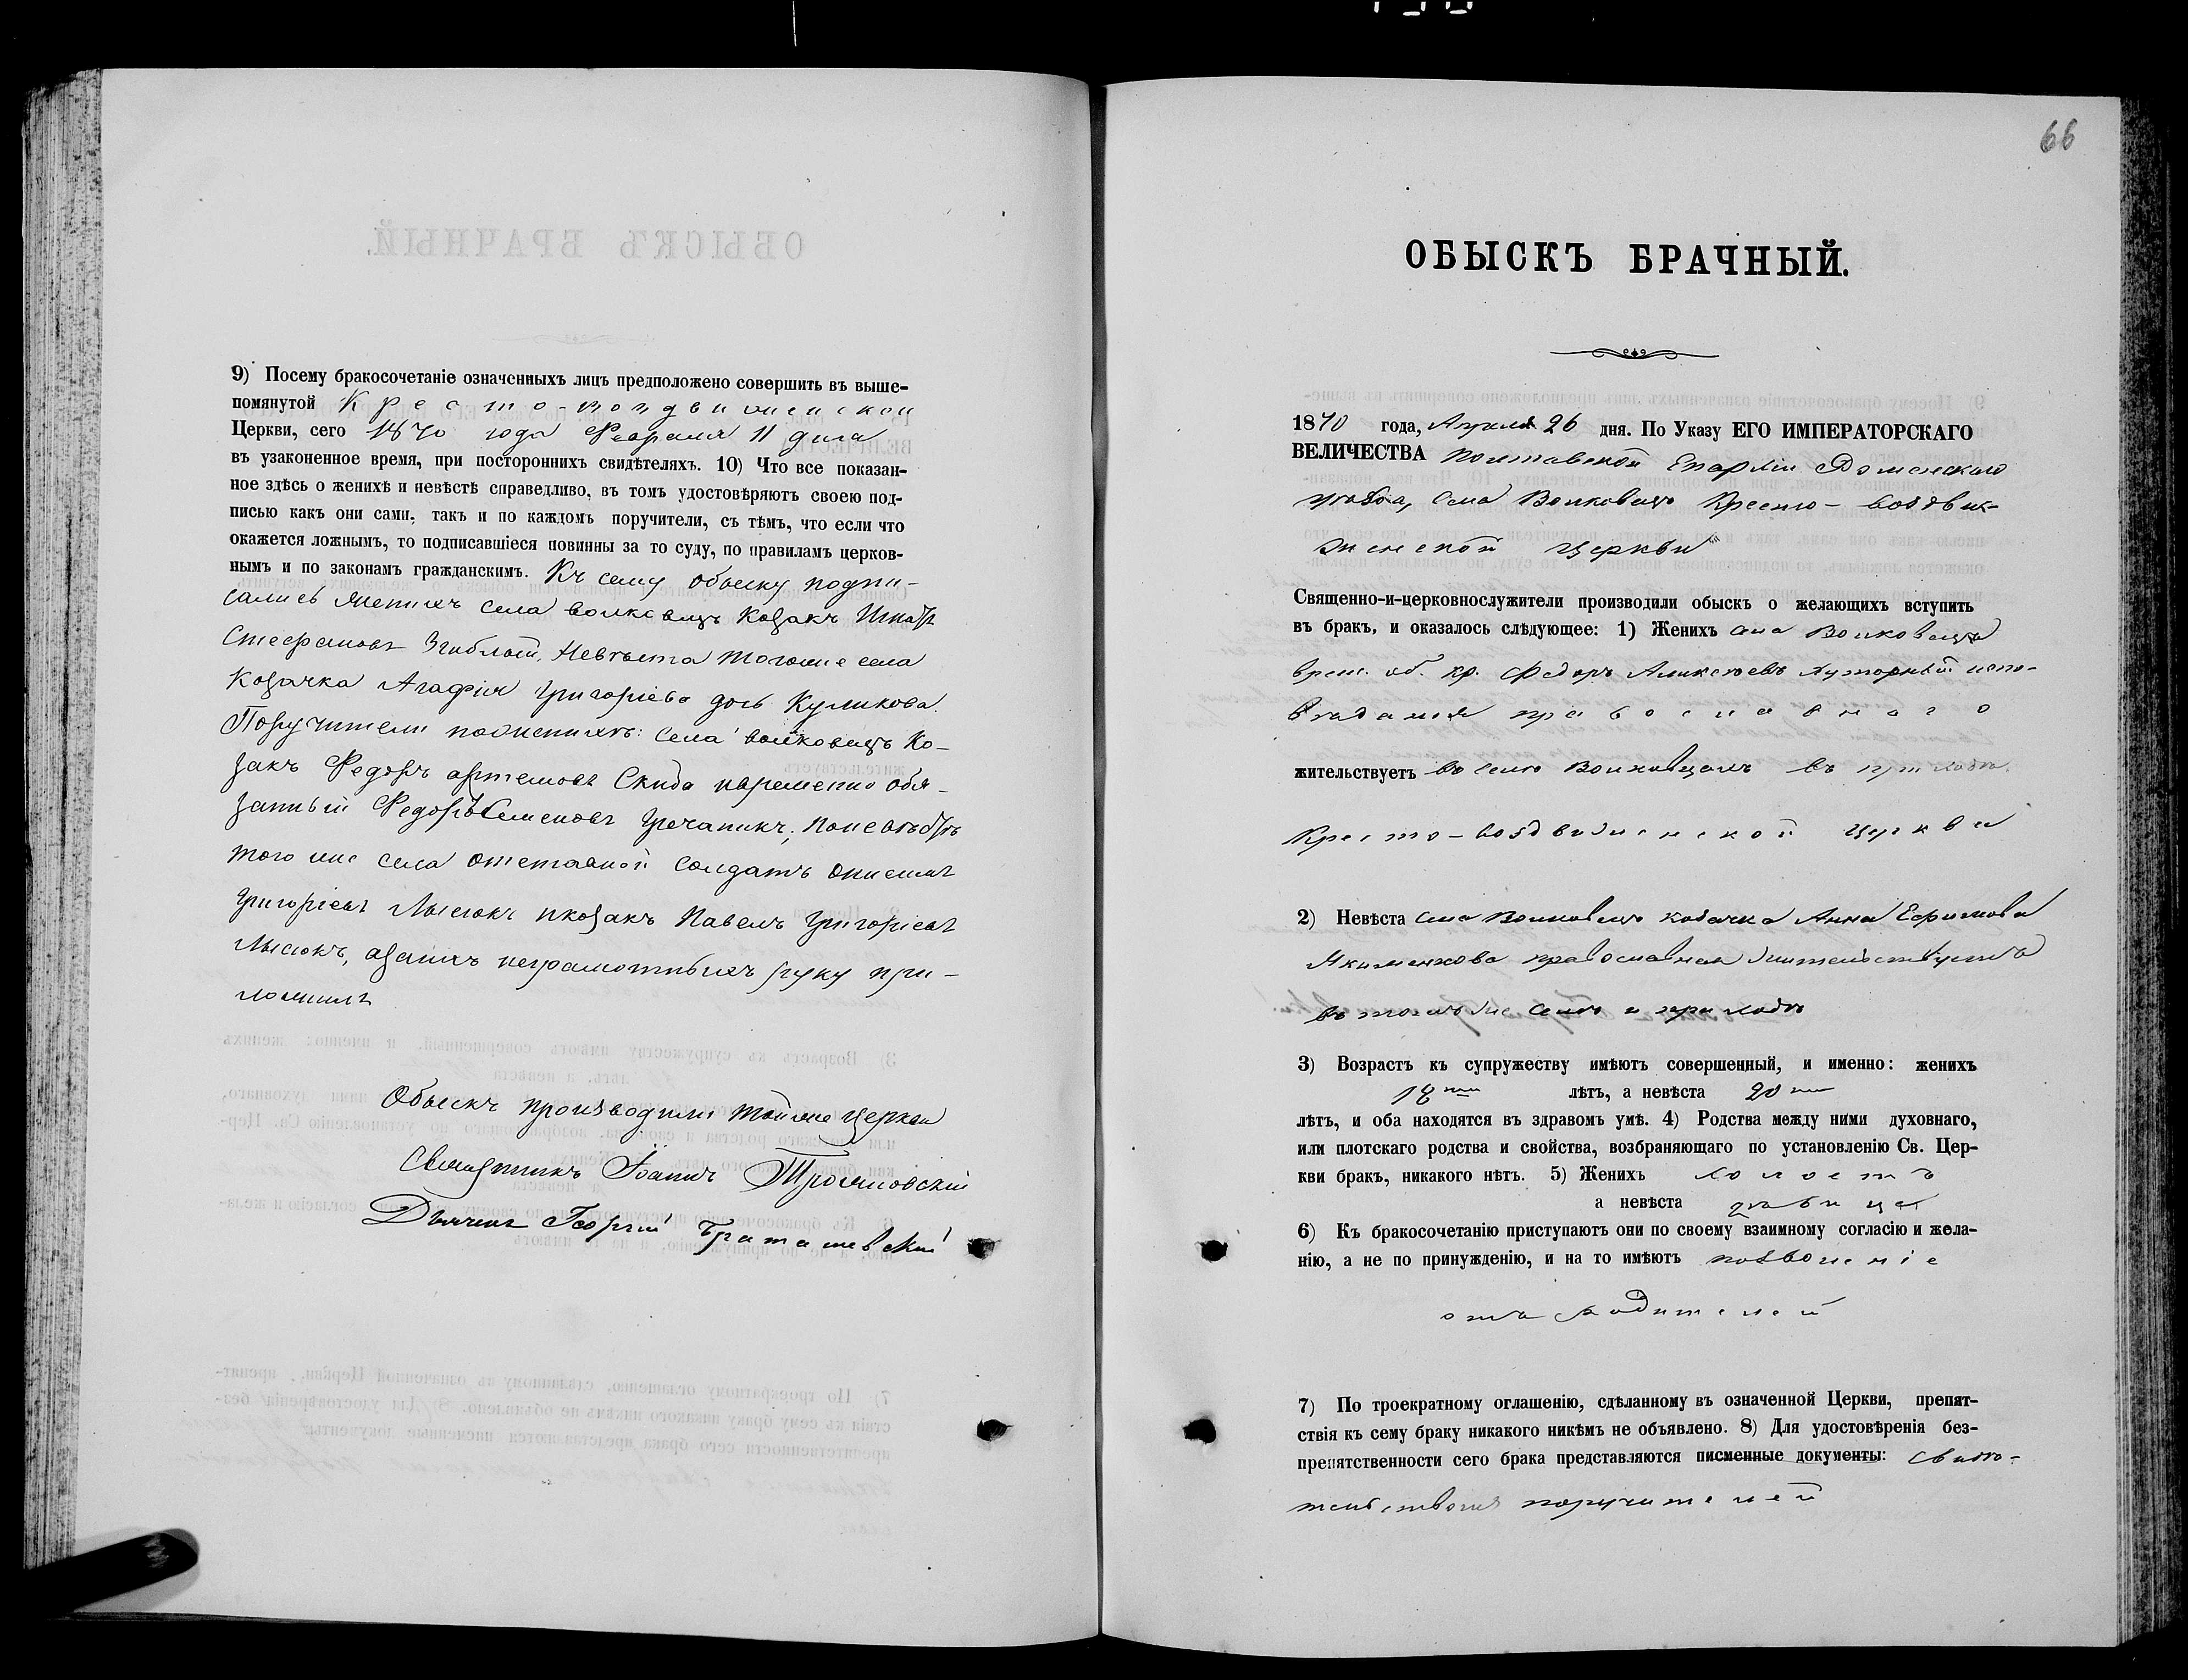 9) Посему бракосочетаніе означенныхъ лицъ предположено совершить въ выше-
помянутой Кресто-воздвиженской
Церкви, сего 1870 года Февраля 11 дня
въ узаконенное время, при постороннихъ свидѣтеляхъ. 10) Что все показан-
ное здѣсь о женихѣ и невѣстѣ справедливо, въ томъ удостовѣряютъ своею под-
писью какъ они сами, такъ и по каждомъ поручители, съ тѣмъ, что если что
окажется ложнымъ, то подписавшіеся повинны за то суду, по правиламъ церков-
нымъ и по законамъ гражданскимъ. Къ сему обыску подпи-
сались Женихъ села волковецъ Козакъ Игнатъ
Стефановъ Згиблый, Невѣста тогоже села
Козачка Агафія Григоріева дочь Куликова.
Поручители поженихѣ: села волковецъ Ко-
закъ Федоръ артемовъ Скиба временно обя-
занный Федоръ Семеновъ Гречаникъ; поневѣстѣ
того же села отставной солдатъ Онисимъ
Григоріевъ Лысюкъ икозакъ Павелъ Григоріевъ
Лысюкъ, азанихъ неграмотныхъ руку при-
ложилъ
Обыскъ производили тойже церкви
Священникъ Іоаннъ
Дьячекъ Георгій
66
ОБЫСКЪ БРАЧНЫЙ.
1870 года, Апреля 26 дня. По Указу ЕГО ИМПЕРАТОРСКАГО
ВЕЛИЧЕСТВА Полтавской Епархіи Роменскаго
уѣзда, села Волковецъ Кресто-воздви-
женской церкви
Священно-и-церковнослужители производили обыскъ о желающихъ вступить
въ бракъ, и оказалось слѣдующее: 1) Женихъ села Волковецъ
врем. об. кр. Федоръ Алексѣевъ Хуторный испо-
вѣданія православнаго
жительствуетъ въ селѣ Волковцахъ въ приходѣ
Кресто-воздвиженской церкви
2) Невѣста села Волковецъ козачка Анна Ефимова
Якименкова православная жительствуетъ
въ томъ же селѣ и приходѣ
3) Возрастъ къ супружеству имѣютъ совершенный, и именно: женихъ
18ти лѣтъ, а невѣста 20ти
лѣтъ, и оба находятся въ здравомъ умѣ. 4) Родства между ними духовнаго,
или плотскаго родства и свойства, возбраняющаго по установленію Св. Цер-
кви бракъ, никакого нѣтъ. 5) Женихъ холостъ
а невѣста дѣвица
6) Къ бракосочетанію приступаютъ они по своему взаимному согласію и жела-
нію, а не по принужденію, и на то имѣютъ позволеніе
отъ родителей
7) По троекратному оглашенію, сдѣланному въ означенной Церкви, препят-
ствія къ сему браку никакого никѣмъ не объявлено. 8) Для удостовѣренія без-
препятственности сего брака представляются писменные документы: свидѣ-
тельствомъ поручителей